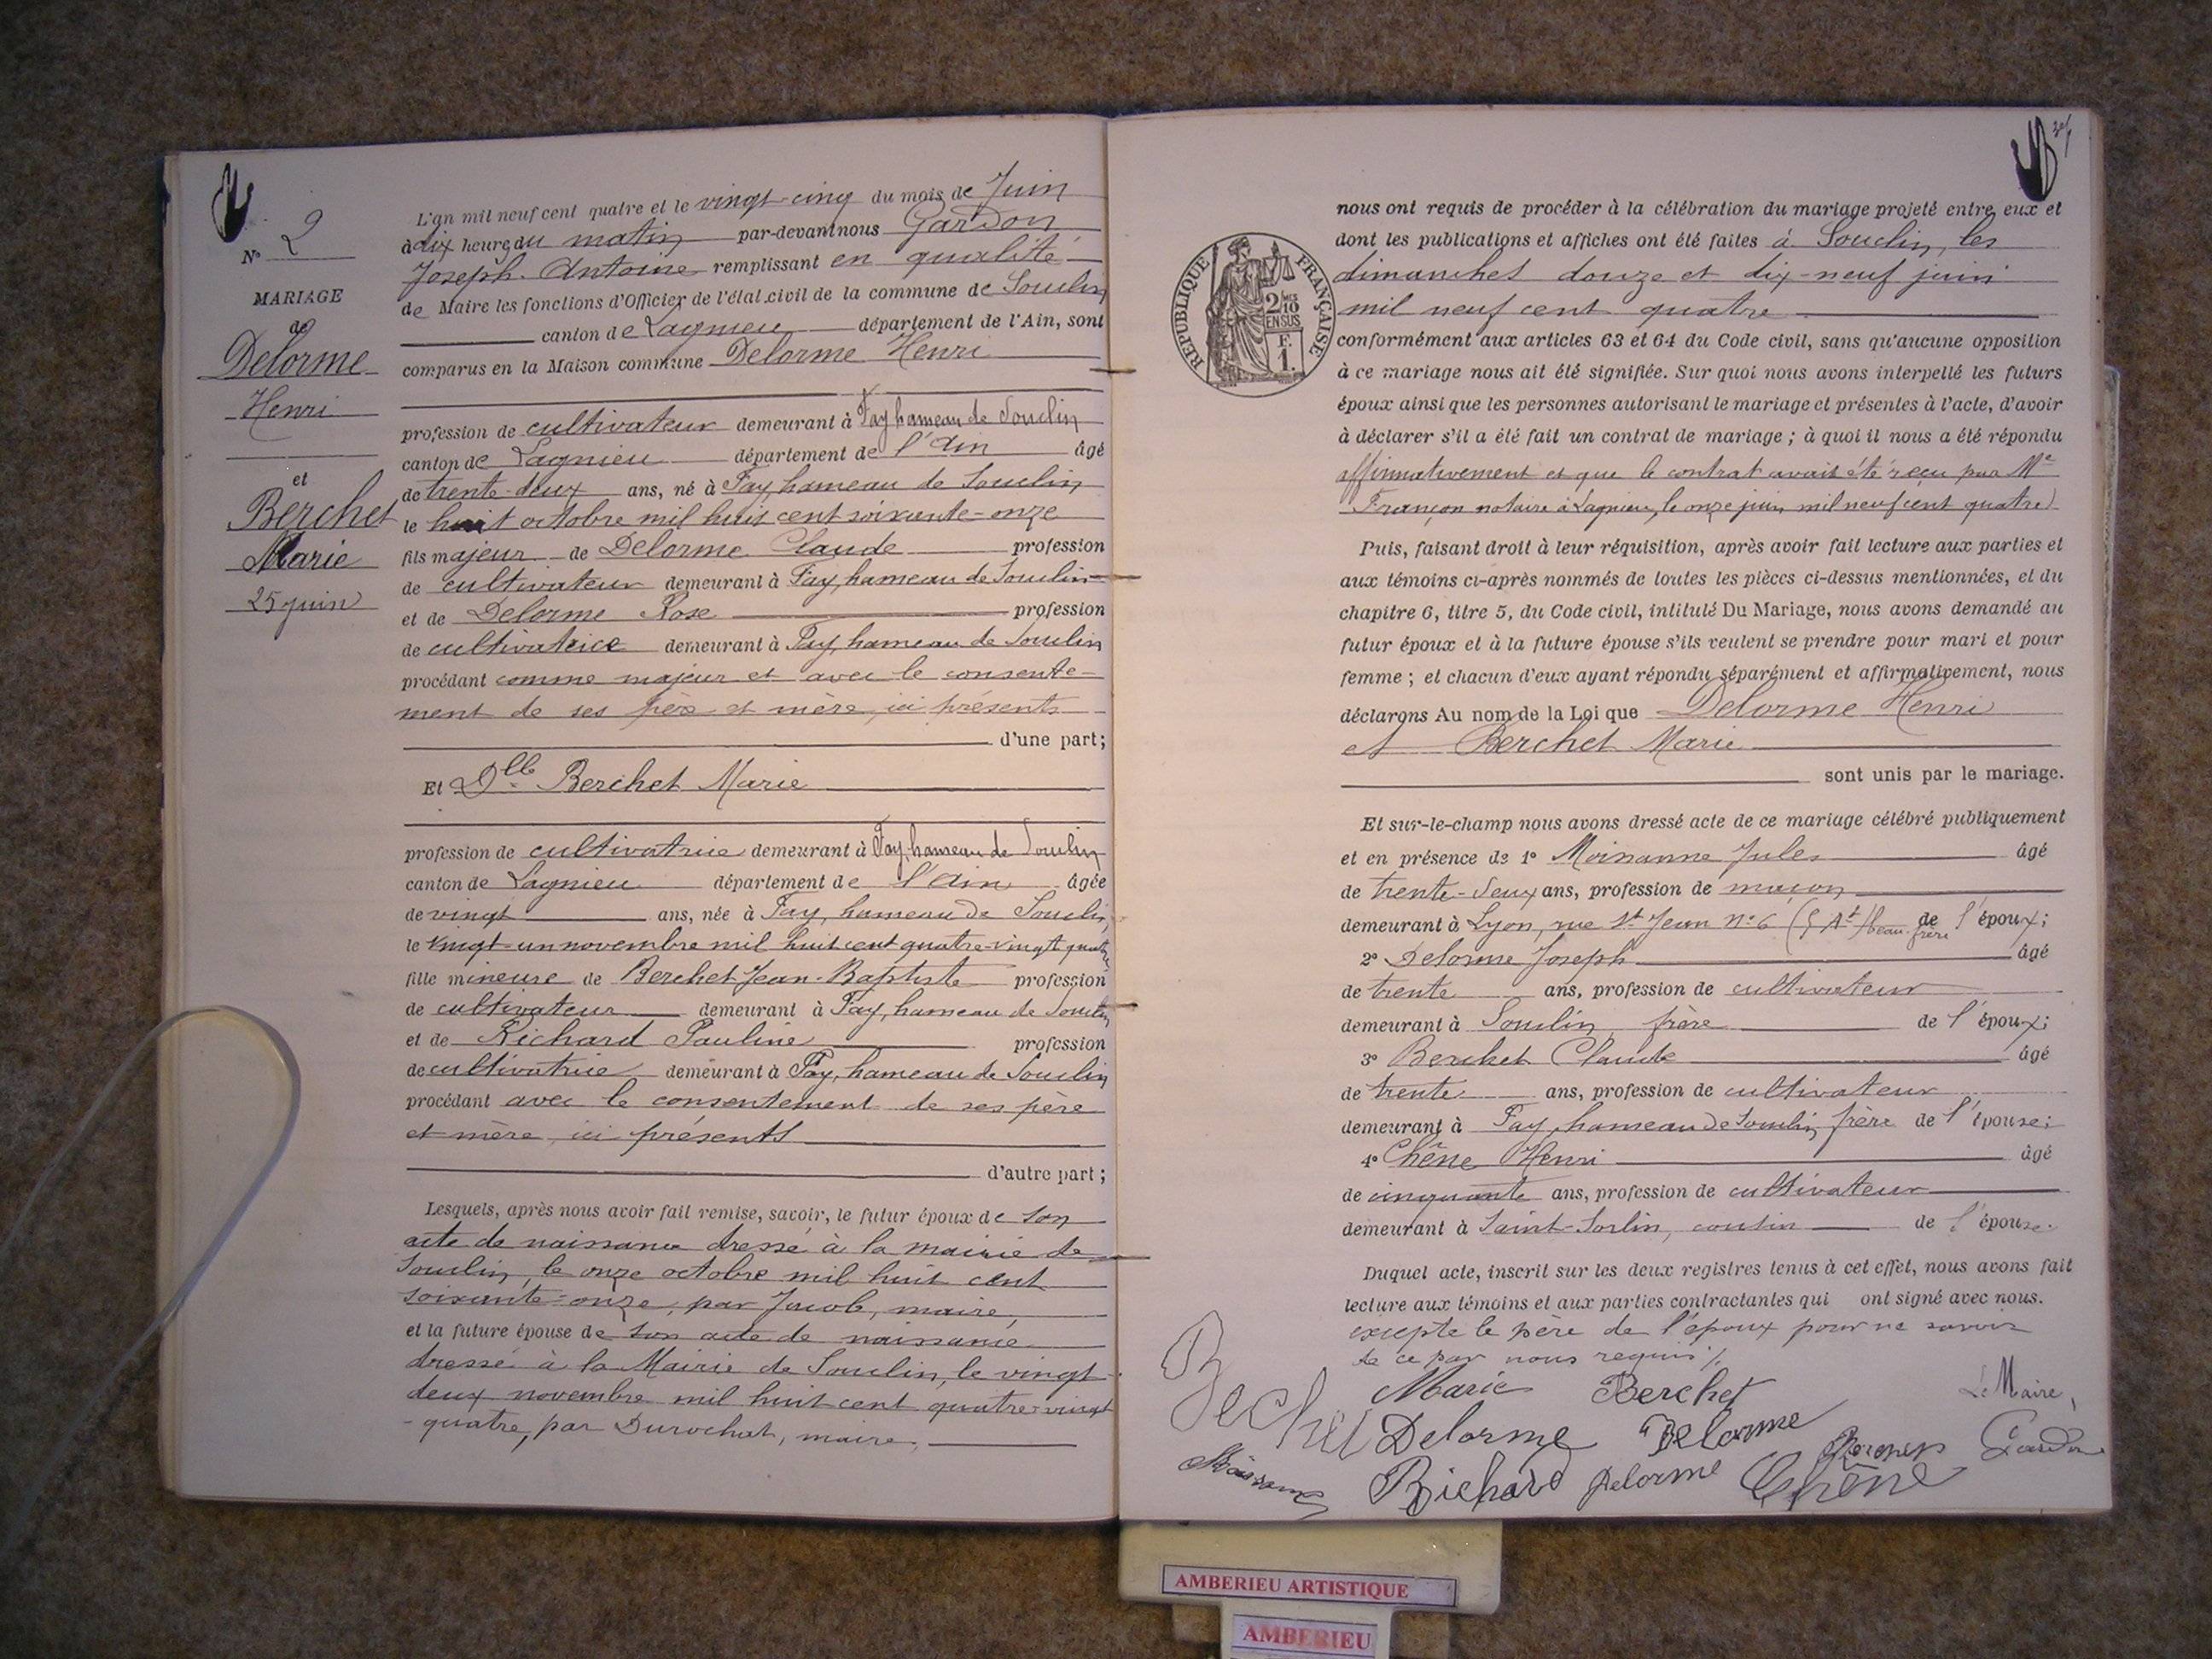 N° 2
MARIAGE
de
Delorme
Henri
et
Berchet
Marie
25 juin
L'an mil neuf cent quatre et le vingt-cinq du mois de Juin
à dix heures du matin par-devant nous Gardon
Joseph-Antoine remplissant en qualité
de Maire les fonctions d'Officier de l'état civil de la commune de Souclin
canton de Lagnieu département de l'Ain, sont
comparus en la Maison commune Delorme Henri
profession de cultivateur demeurant à Fay, hameau de Souclin
canton de Lagnieu département de l'Ain âgé
de trente-deux ans, né à Fay, hameau de Souclin
le huit octobre mil huit cent soixante-onze
fils majeur de Delorme Claude profession
de cultivateur demeurant à Fay, hameau de Souclin
et de Delorme Rose profession
de cultivatrice demeurant à Fay, hameau de Souclin
procédant comme majeur et avec le consente-
ment de ses père et mère, ici présents
d'une part;
Et Dlle Berchet Marie
profession de cultivatrice demeurant à Fay, hameau de Souclin
canton de Lagnieu département de l'Ain âgée
de vingt ans, née à Fay, hameau de Souclin
le vingt-un novembre mil huit cent quatre-vingt quatre
fille mineure de Berchet Jean-Baptiste profession
de cultivateur demeurant à Fay, hameau de Souclin
et de Richard Pauline profession
de cultivatrice demeurant à Fay, hameau de Souclin
procédant avec le consentement de ses père
et mère, ici présents
d'autre part;
Lesquels, après nous avoir fait remise, savoir, le futur époux de son
acte de naissance dressé à la mairie de
Souclin, le onze octobre mil huit cent
soixante-onze, par Jacob, maire,
et la future épouse de son acte de naissance
dressé à la Mairie de Souclin, le vingt-
deux novembre mil huit cent quatre-vingt
-quatre, par Durochat, maire,
nous ont requis de procéder à la célébration du mariage projeté entre eux et
dont les publications et affiches ont été faites à Souclin, les
dimanches douze et dix-neuf juin
mil neuf cent quatre
RÉPUBLIQUE FRANÇAISE
2/10 MES
EN SUS
F.
1.
conformément aux articles 63 et 64 du Code civil, sans qu'aucune opposition
à ce mariage nous ait été signifiée. Sur quoi nous avons interpellé les futurs
époux ainsi que les personnes autorisant le mariage et présentes à l'acte, d'avoir
à déclarer s'il a été fait un contrat de mariage; à quoi il nous a été répondu
affirmativement et que le contrat avait été reçu par Me
Françon notaire à Lagnieu, le onze juin mil neuf cent quatre
Puis, faisant droit à leur réquisition, après avoir fait lecture aux parties et
aux témoins ci-après nommés de toutes les pièces ci-dessus mentionnées, et du
chapitre 6, titre 5, du Code civil, intitulé Du Mariage, nous avons demandé au
futur époux et à la future épouse s'ils veulent se prendre pour mari et pour
femme; et chacun d'eux ayant répondu séparément et affirmativement, nous
déclarons Au nom de la Loi que Delorme Henri
et Berchet Marie
sont unis par le mariage.
Et sur-le-champ nous avons dressé acte de ce mariage célébré publiquement
et en présence de 1° Moissanne Jules âgé
de trente-deux ans, profession de maçon
demeurant à Lyon, rue St Jean N° 6 beau-frère de l'époux;
2° Delorme Joseph âgé
de trente ans, profession de cultivateur
demeurant à Souclin, frère de l'époux;
3° Berchet Claude âgé
de trente ans, profession de cultivateur
demeurant à Fay, hameau de Souclin, frère de l'épouse;
4° Chêne Henri âgé
de cinquante ans, profession de cultivateur
demeurant à Saint-Sorlin, cousin de l'épouse.
Duquel acte, inscrit sur les deux registres tenus à cet effet, nous avons fait
lecture aux témoins et aux parties contractantes qui ont signé avec nous.
excepté le père de l'époux pour ne savoir
de ce par nous requis
Marie Berchet
Le Maire,
Bechet Delorme Delorme
Gardon
Richard Delorme Chêne
AMBERIEU ARTISTIQUE
AMBERIEU